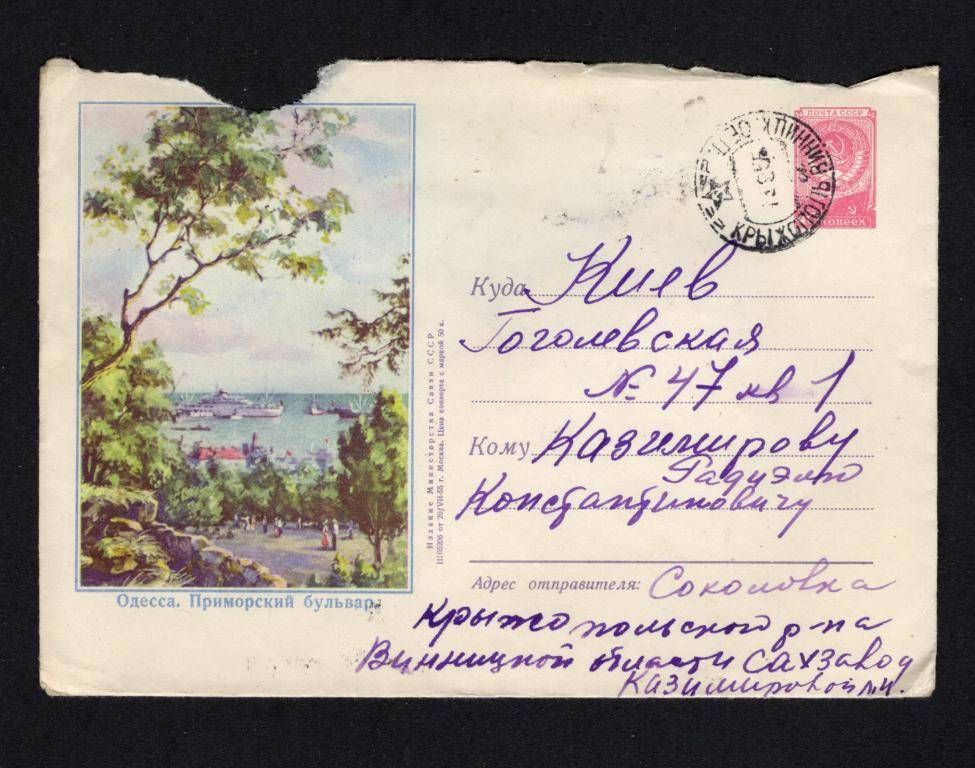 ПОЧТА СССР
КОПЕЕК
КРЫЖОПОЛЬ ВИННИЦК. ОБЛ.
Куда Киев
Гоголевская
№ 47 кв 1
Кому Казимирову
Радуэлю
Константиновичу
Адрес отправителя: Соколовка
Крыжопольского р-на
Винницкой области Сахзавод
Казимировой М.И.
Одесса. Приморский бульвар.
Издание Министерства Связи СССР
Ш05206 от 20/VII-55 г. Москва. Цена конверта с маркой 50 к.